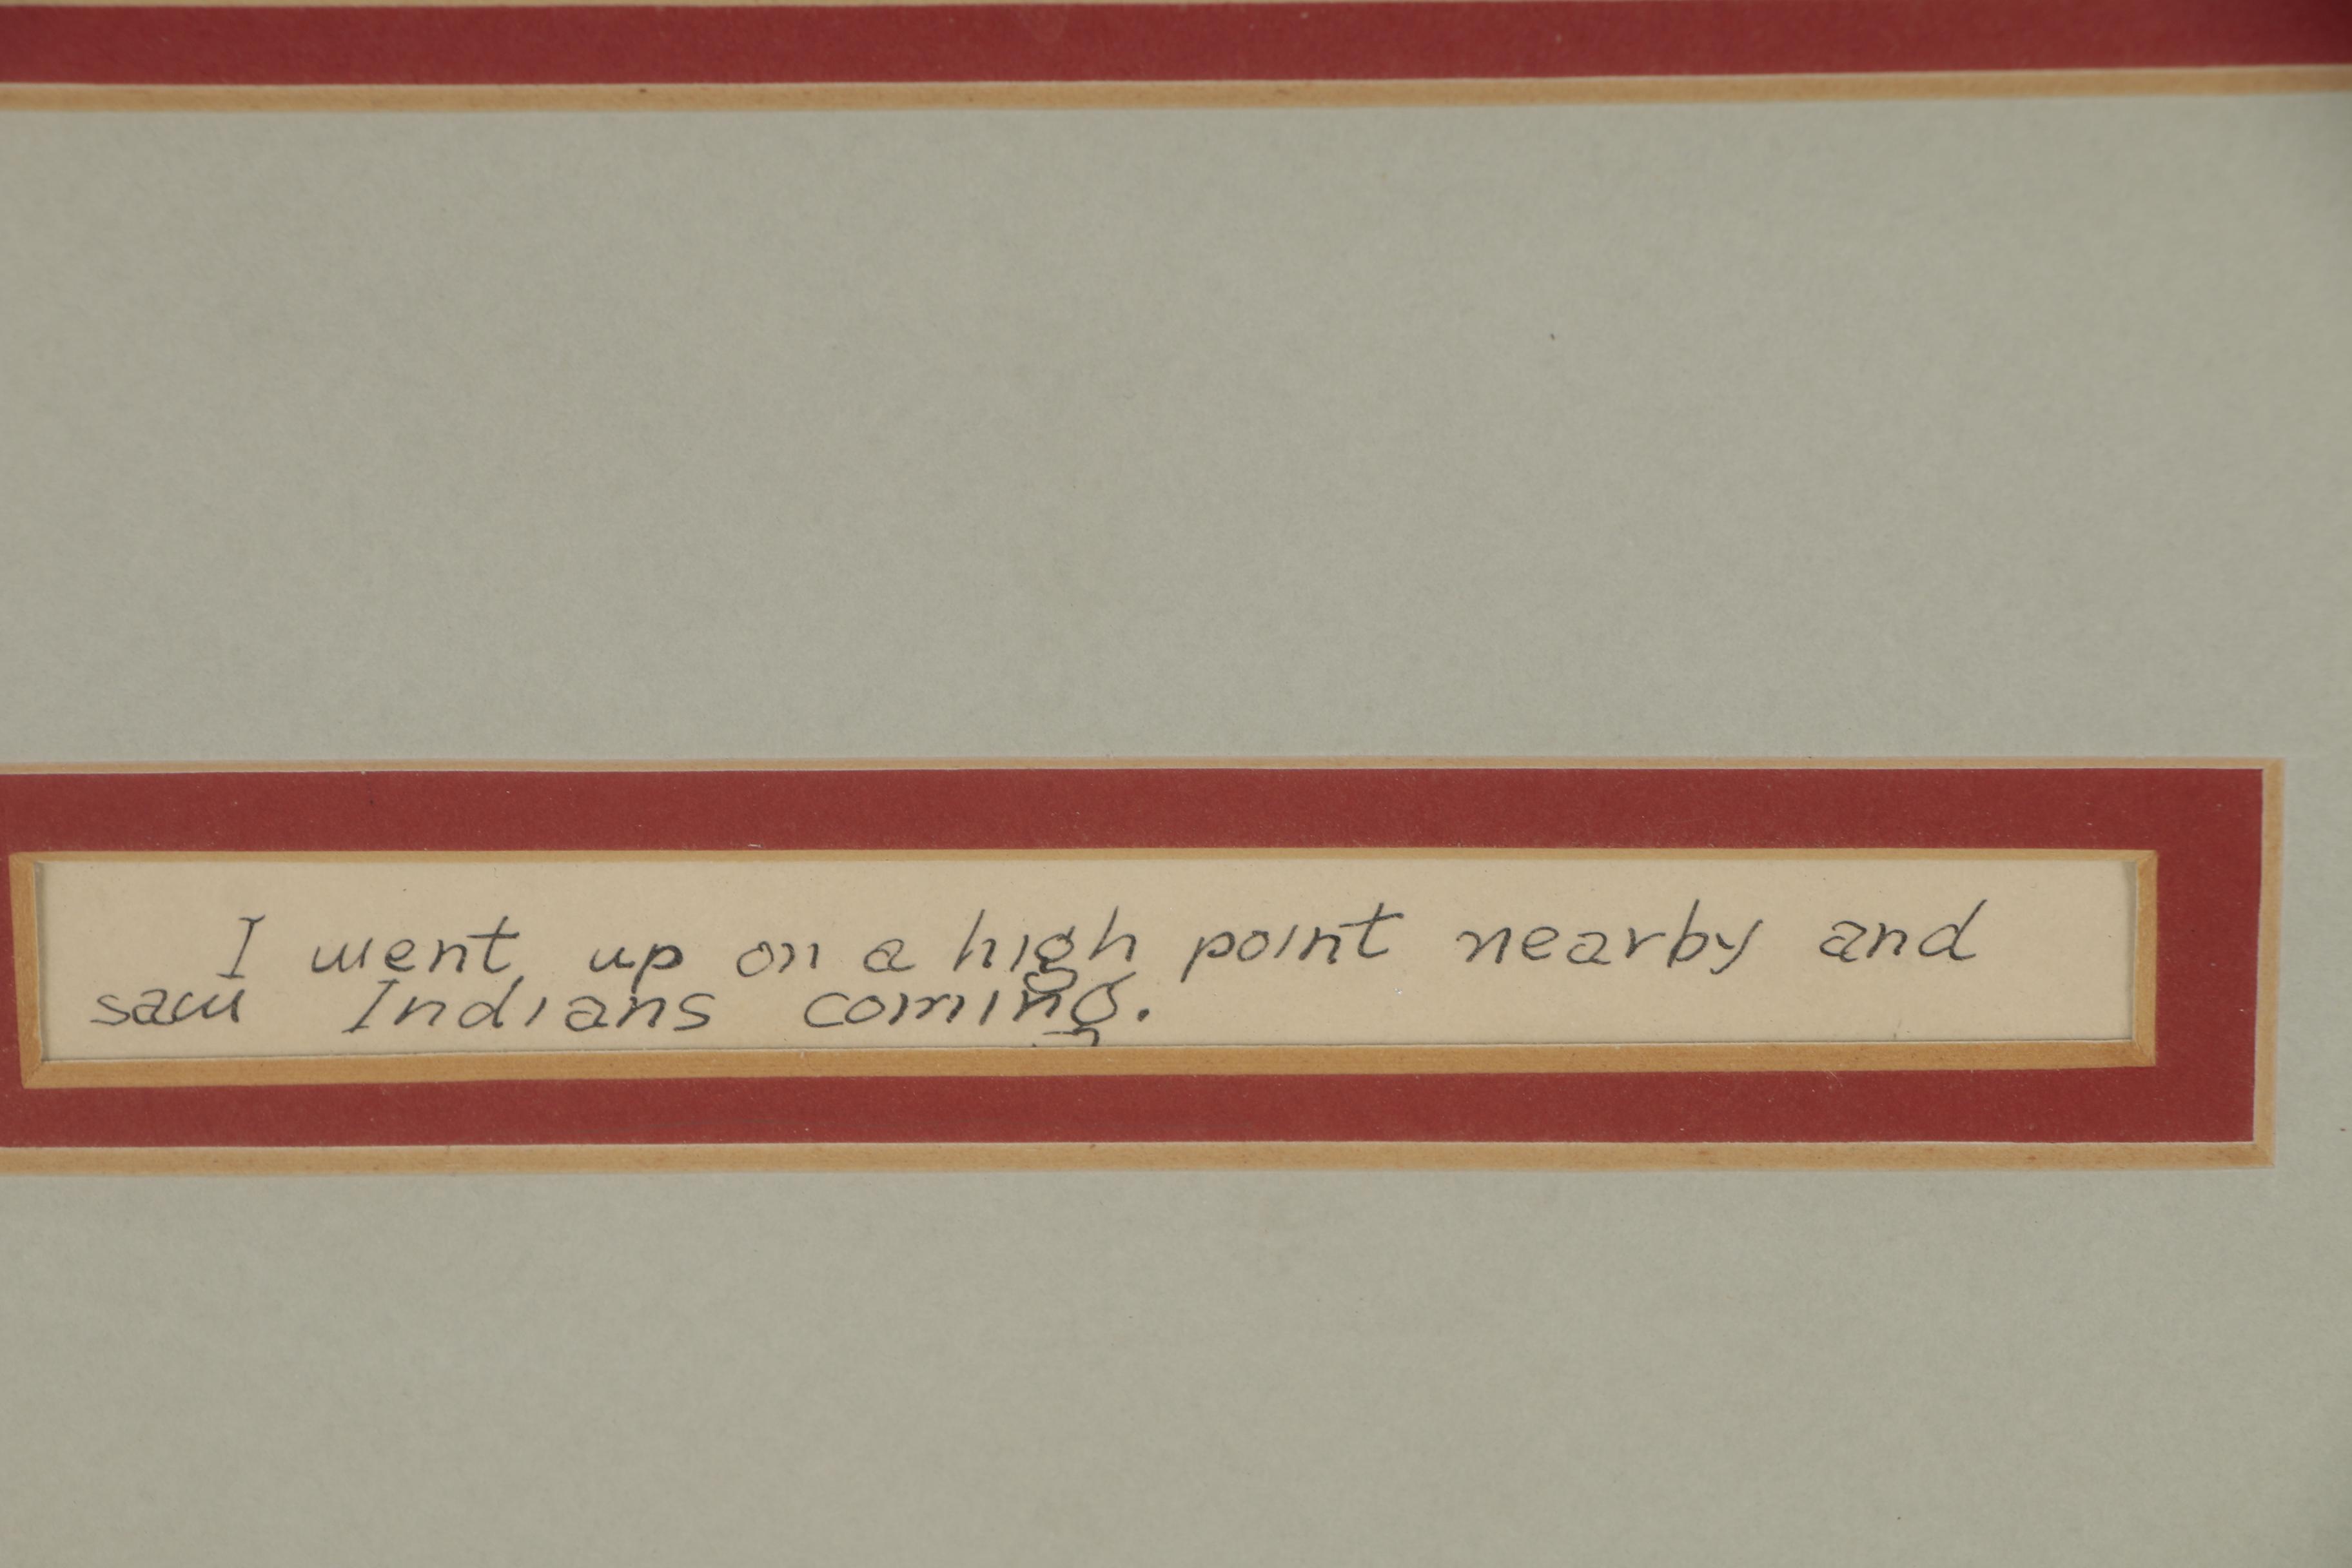 I went up on a high point nearby and
saw Indians coming.